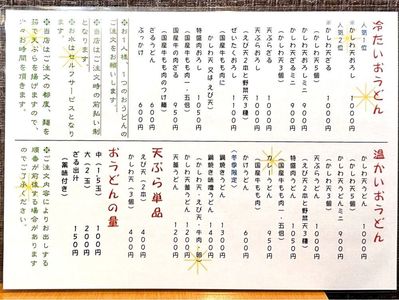 冷たいおうどん
人気1位
☆かしわ天おろし 1000円
人気2位
☆かしわ天ざる 1000円
(かしわ天5個)
かしわ天ざるミニ 900円
(かしわ天3個)
天ぷらおろし
天ぷらざる
(えび天2本と野菜天3種)
ぜいたくおろし
(かしわ天 又は えび天)
特盛肉おろし 1050円
(国産牛もも肉・1.5倍)
国産牛の肉ざる
(国産牛もも肉のつけ麺)
ざるうどん 600円
ぶっかけ 600円
※お一人様、1つのおうどんの
ご注文をお願いします。
※当店はご注文時の前払い制
となります。
※お水はセルフサービスとなり
ます。
※当店はご注文の都度、麺を
茹で天ぷらを揚げますので、
少々お時間を頂きます。
温かいおうどん
かしわ天おろし 1000円
かしわ天うどん
(かしわ天5個)
かしわ天うどんミニ 900円
(かしわ天3個)
天ぷらうどん
(えび天2本と野菜天3種)
特盛肉うどん
(国産牛もも肉・1.5倍)
カレーうどん
(国産牛もも肉)
かけうどん 600円
(冬季限定)
鍋焼きうどん 1300円
鍋焼き味噌うどん
(かしわ天・えび天・牛肉・卵)
かしわ天釜うどん
天釜うどん 1200円
天ぷら単品
えび天 (2本) 400円
かしわ天 (3個) 400円
おうどんの量
中 (1.5玉) 100円
大 (2玉) 200円
ざる出汁 150円
(薬味付き)
※ご注文内容によりお出しする
順番が前後する場合があります
のでご了承ください。